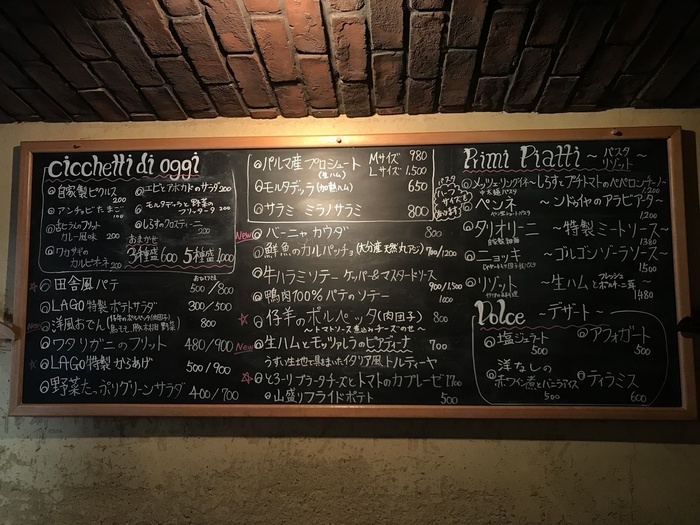 cicchetti di oggi
自家製ピクルス 200
アンチョビたまご 100
カレー風味 200
ワカサギの
カルピオーネ 200
エビとアボカドのサラダ 200
モルタデッラと野菜の
フリッタータ 200
しらすのクロスティーニ 200
おまかせ
3種盛 600 5種盛 1,000
田舎風パテ 500/800
LAGO特製ポテトサラダ 300/500
New 洋風おでん 800
ワタリガニのフリット 480/900
LAGO特製からあげ 500/900
野菜たっぷりグリーンサラダ 400/700
パルマ産プロシュート Mサイズ 980
(生ハム) Lサイズ 1,500
モルタデッラ(加熱ハム) 650
サラミ ミラノサラミ 800
New バーニャカウダ 800
鮮魚のカルパッチョ(大分産天然丸アジ) 700/1200
牛ハラミソテー ケッパー&マスタードソース 900/1500
鴨肉100%パテのソテー 1000
仔羊のポルペッタ(肉団子) 800
〜トマトソース煮込みチーズのせ〜
New 生ハムとモッツァレラのピアディーナ 700
うすい生地で具をまいたイタリア風トルティーヤ
とろ〜りブラータチーズとトマトのカプレーゼ 1700
山盛りフライドポテト 500
パスタ
ハーフ
サイズも
あります!
Rimi Piatti 〜パスタ
リゾット〜
メッツェリングイネ 〜しらすとアチトマトのペペロンチーノ〜 1200
ペンネ 〜ンドゥイヤのアラビアータ〜 1200
タリオリーニ 〜特製ミートソース〜 1380
自家製麺
ニョッキ 〜ゴルゴンゾーラソース〜 1500
リゾット 〜生ハムとポルチーニ茸〜 1480
フレッシュ
Dolce 〜デザート〜
塩ジェラート 500
アフォガート 500
洋なしの
赤ワイン煮とバニラアイス 500
ティラミス 600